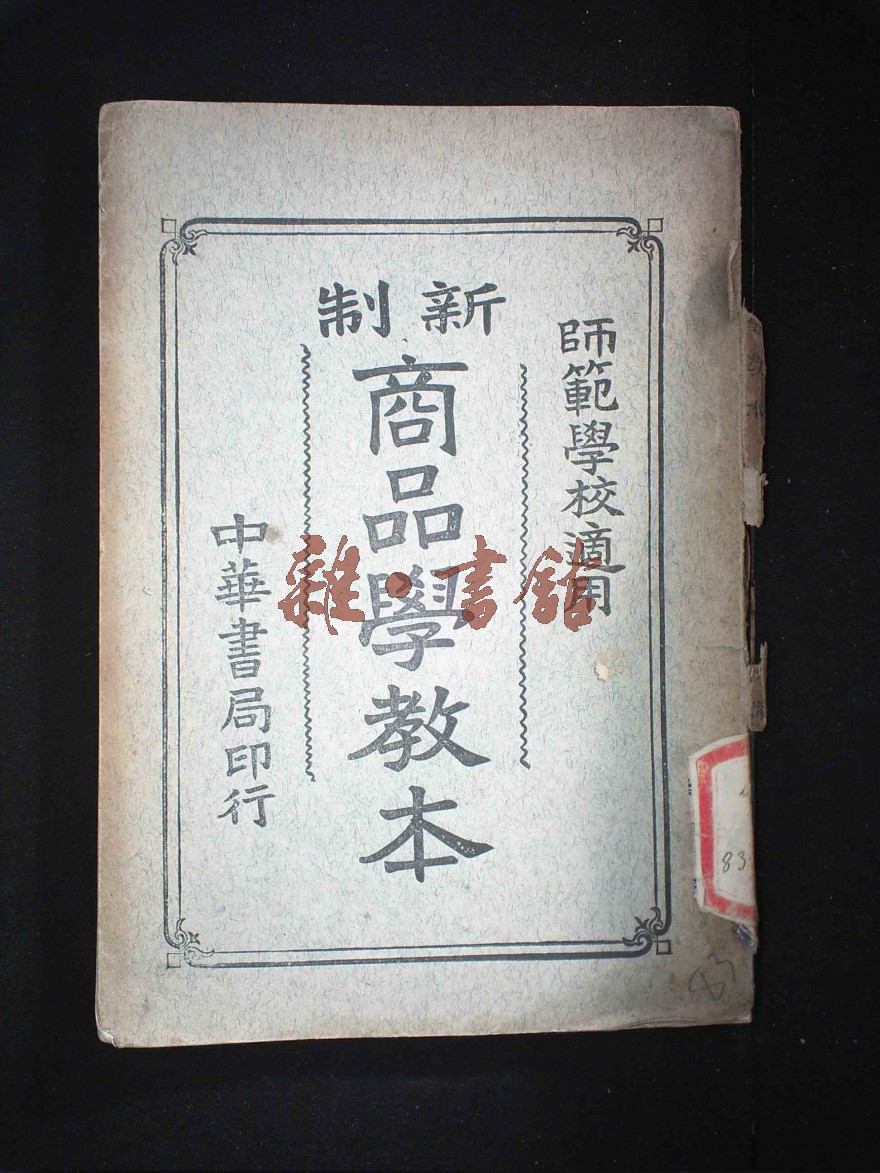 師範學校適用
新制
商品學教本
中華書局印行
雜·書館
83